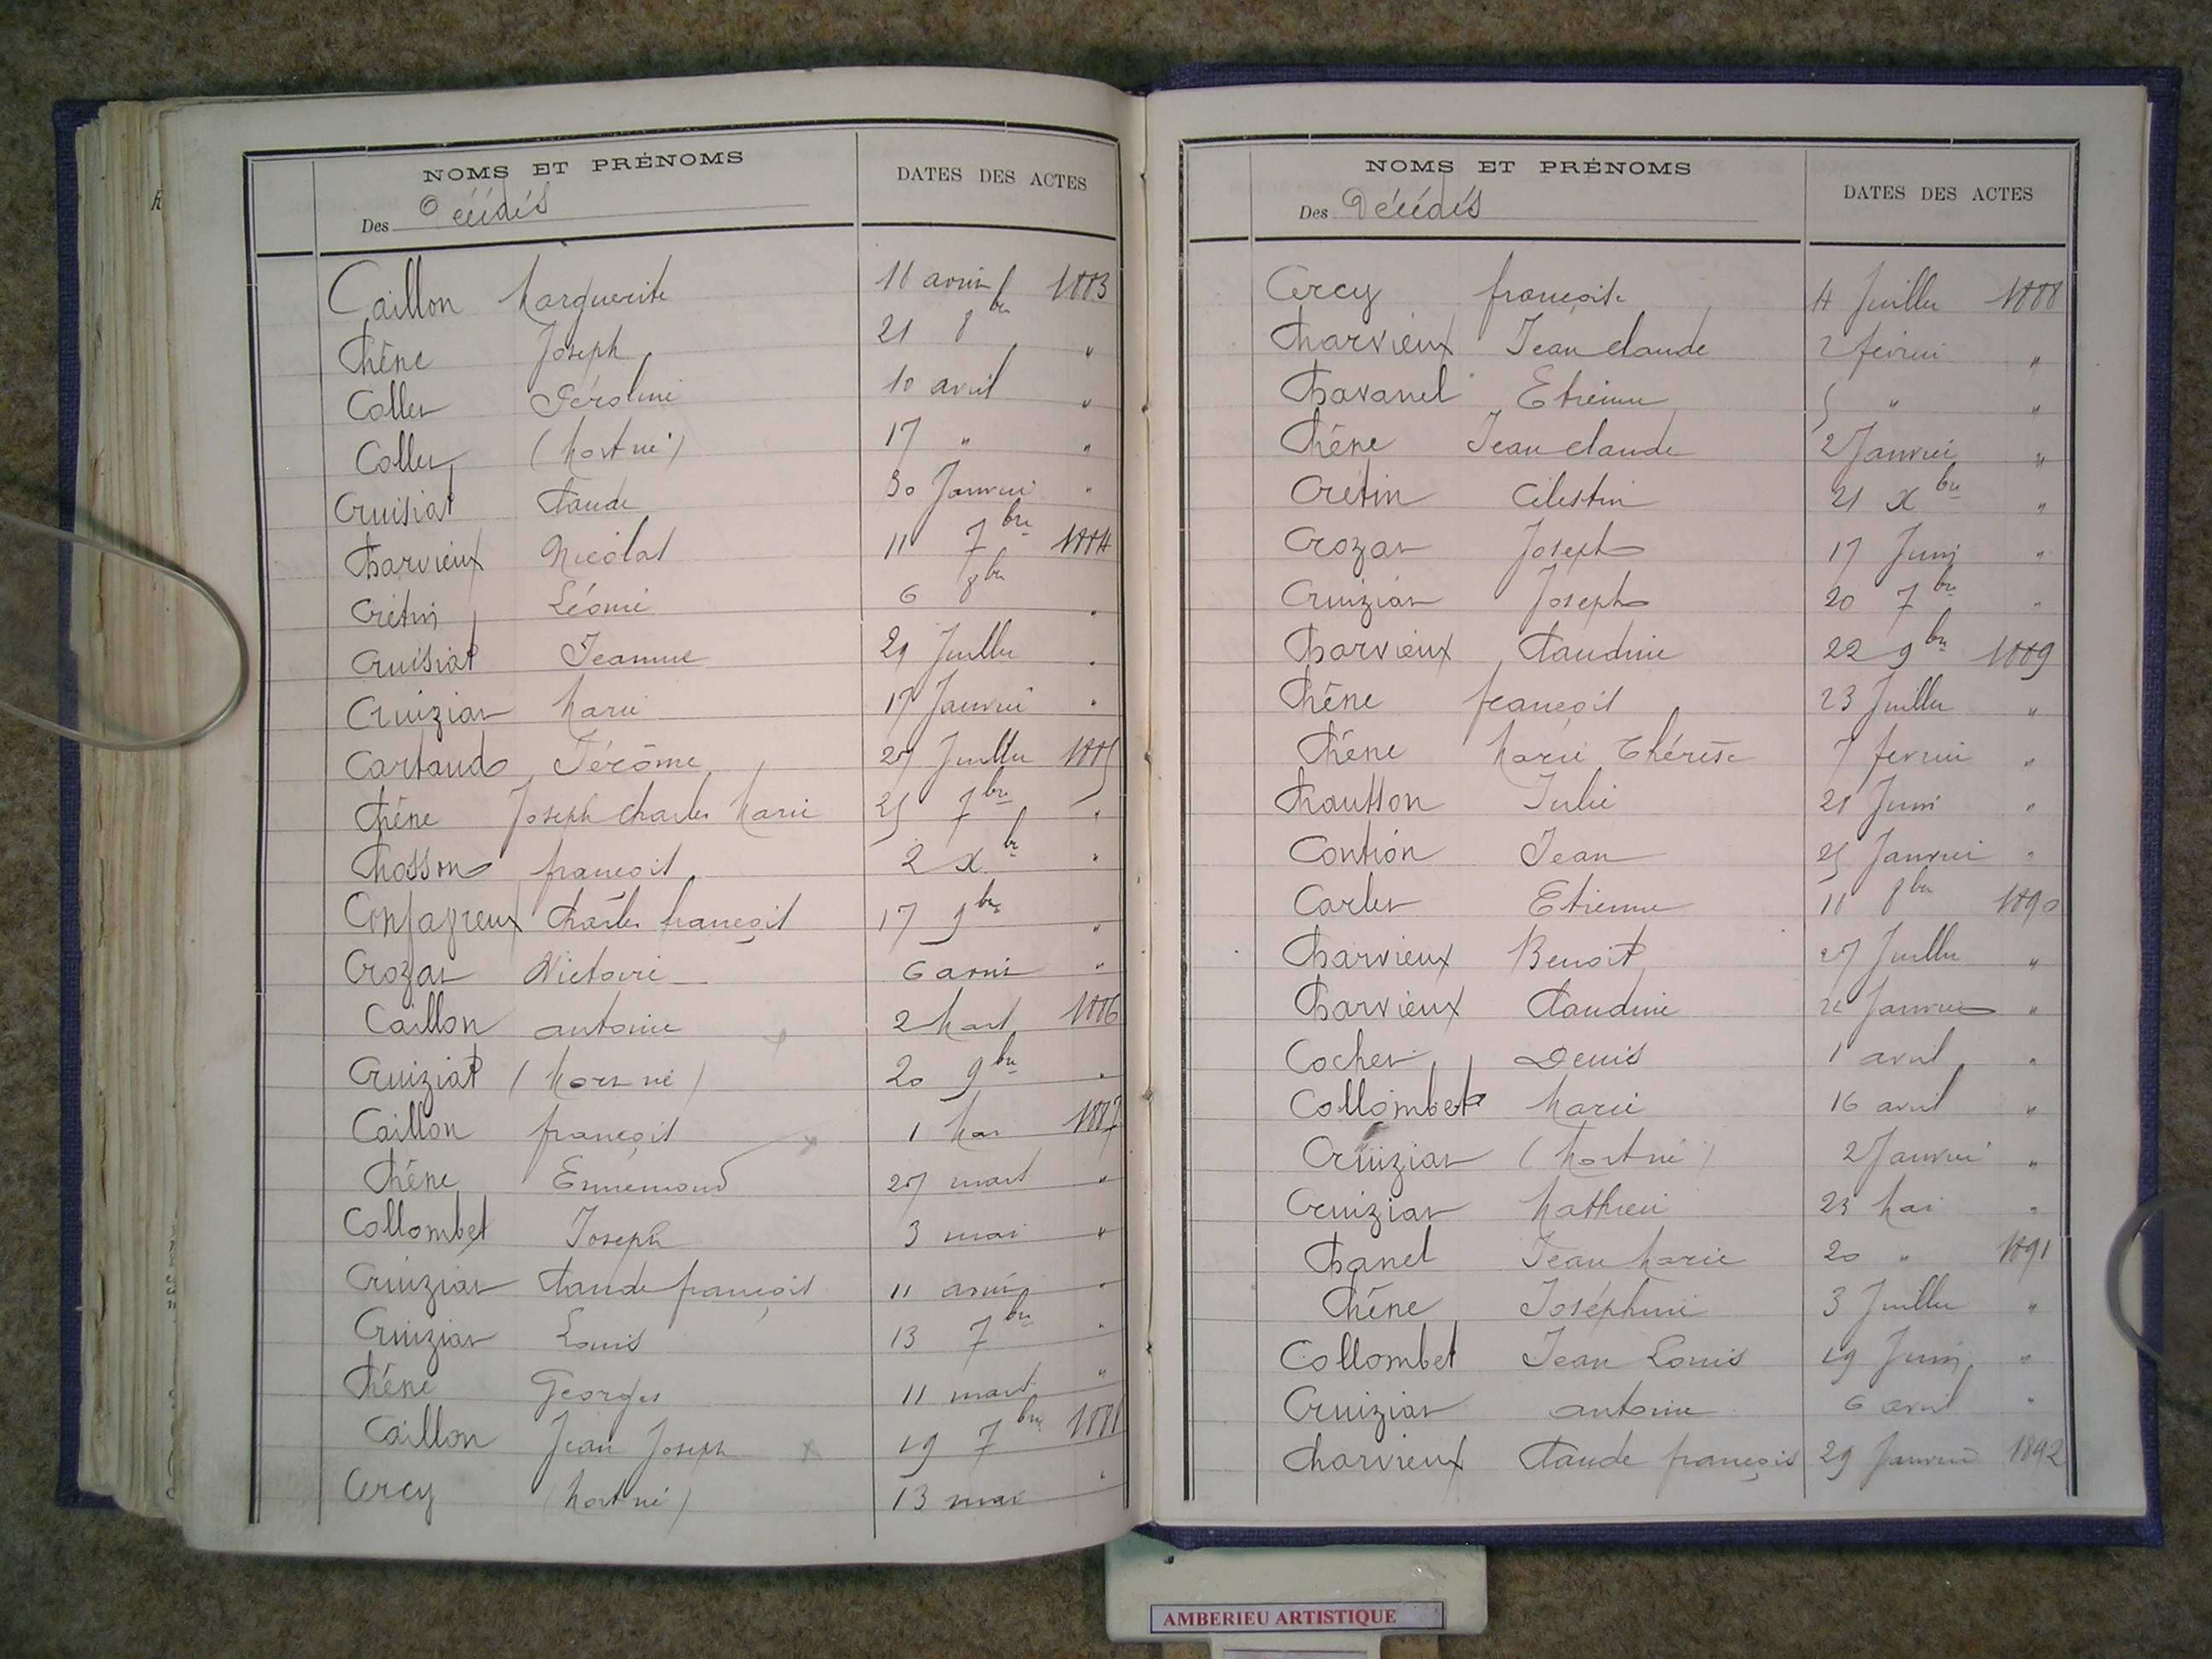 NOMS ET PRÉNOMS
DATES DES ACTES
Des Décédés
Caillon Marguerite 1883
Chêne Joseph 21 8bre "
Collet Péroline 10 avril "
Collet (Mort né) 17 " "
Cruisiat Claude 30 Janvier "
Charvieux Nicolas 11 7bre 1884
Crétin Léonie 6 8bre "
Cruisiat Jeanne 29 Juillet "
Cruiziat Marie 17 Janvier "
Cartaud Jérôme 27 Juillet 1885
Chêne Joseph Charles Marie 25 7bre "
Chosson françois 2 Xbre "
Charles françois 17 9bre "
Crozat Victoire 6 août "
Caillon antoine 2 Mars 1886
Cruiziat (Mort né) 20 9bre "
Caillon françois 1 Mai 1887
Chêne Ennemond 27 mars "
Collombet Joseph 3 mai "
Cruiziat Claude françois 11 août "
Cruiziat Louis 13 7bre "
Chêne Georges 11 mars "
Caillon Jean Joseph x 19 7bre 1888
Cercy (Mort né) 13 mai "
NOMS ET PRÉNOMS
DATES DES ACTES
Des Décédés
Cercy françoise Juillet 1888
Charvieux Jean claude 2 février "
Chavanel Etienne 5 " "
Chêne Jean claude 2 Janvier "
Crétin Célestin 21 Xbre "
Crozat Joseph 17 Juin "
Cruiziat Joseph 20 7bre "
Charvieux Claudine 22 9bre 1889
Chêne françois 23 Juillet "
Chêne Marie Thérèse 7 février "
Julie 21 Juin "
Contion Jean 25 Janvier "
Carlet Etienne 8bre 1890
Charvieux Benoit 27 Juillet "
Charvieux Claudine Janvier "
Cochet Denis 1 avril "
Collombet Marie 16 avril "
Cruiziat (Mort né) 2 Janvier "
Cruiziat Mathieu 23 Mai "
Chanel Jean Marie 20 " 1891
Chêne Joséphine 3 Juillet "
Collombet Jean Louis 19 Juin "
Cruiziat antoine 6 avril "
Charvieux Claude françois 29 Janvier 1892
AMBERIEU ARTISTIQUE